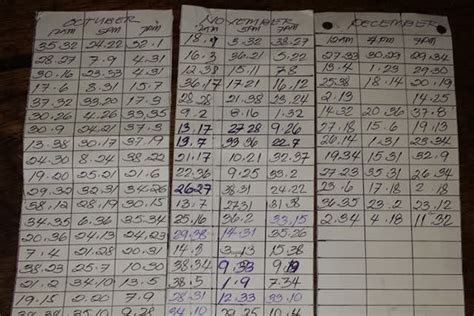 OCTOBER
12AM 5AM 7AM
35.32 24.22 32.1
28.27 7.9 4.31
30.16 23.33 4.31
17.6 8.31 15.7
37.32 33.20 17.9
30.26 4.26 33.35
30.9 24.21 37.3
13.38 30.17 37.19
24.30 8.24 38.22
19.20 25.21 21.6
29.32 32.31 34.26
38.12 28.19 30.15
34.35 6.36 35.34
20.36 24.13 24.23
7.4 21.28 20.31
38.23 25.7 10.30
21.2 34.10 13.5
19.15 2.20 7.9
35.10
NOVEMBER
18.9 3.32 38.27
16.3 36.21 5.22
12.38 15.11 7.8
36.17 17.21 16.12
28.28 21.38 33.24
9.2 8.16 1.32
13.17 27.28 9.26
13.7 33.36 22.7
21.17 10.21 32.37
22.36 23.32 37.23
26.27 38.31 24.22
13.7 27.31 31.8
25.16 36.2 33.15
29.38 14.31 35.26
14.5 3.13 15.38
38.34 9.33
38.5 1.9 7.34
28.31 12.33 33.10
34.10 29.25 10.4
DECEMBER
12AM 4PM 7AM
27.33 30.29 29.34
13.4 1.23 29.30
25.38 18.14 20.19
2.13 14.25
14.32 20.36 37.8
27.18 15.6 19.13
26.14 1.31 23.34
19.34 15.31 32.9
27.23 35.31 26.24
23.6 17.18 2.18
36.35 23.2 23.12
2.34 4.18 11.32